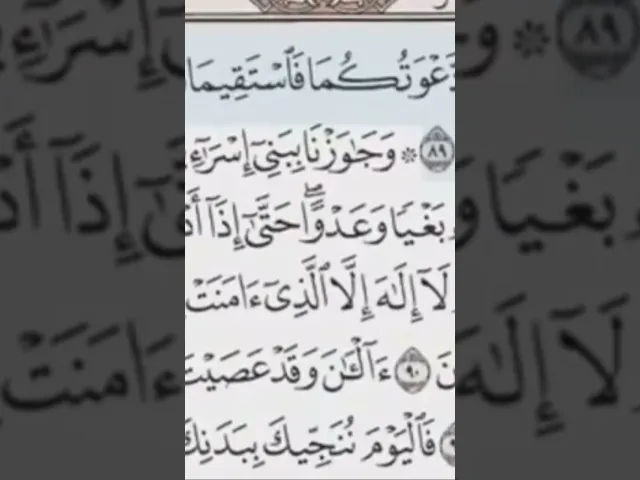 دَّعْوَتُكُمَا فَٱسْتَقِيمَا
٨٩ ۞ وَجَٰوَزْنَا بِبَنِىٓ إِسْرَٰٓءِ
بَغْيًا وَعَدْوًا ۖ حَتَّىٰٓ إِذَآ أَدْ
لَآ إِلَٰهَ إِلَّا ٱلَّذِىٓ ءَامَنَتْ
نَ ٩٠ ءَآلْـَٰٔنَ وَقَدْ عَصَيْتَ
فَٱلْيَوْمَ نُنَجِّيكَ بِبَدَنِكَ